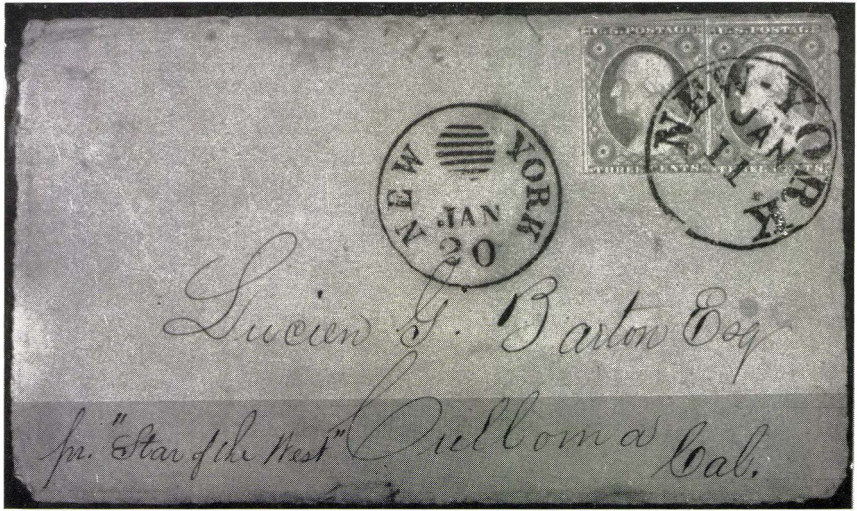 U.S. POSTAGE U.S. POSTAGE
THREE CENTS THREE CENTS
NEW-YORK
JAN
11
NEW YORK
JAN
20
Lucien G. Barton Esq
Culloma
pr. "Star of the West"
Cal.